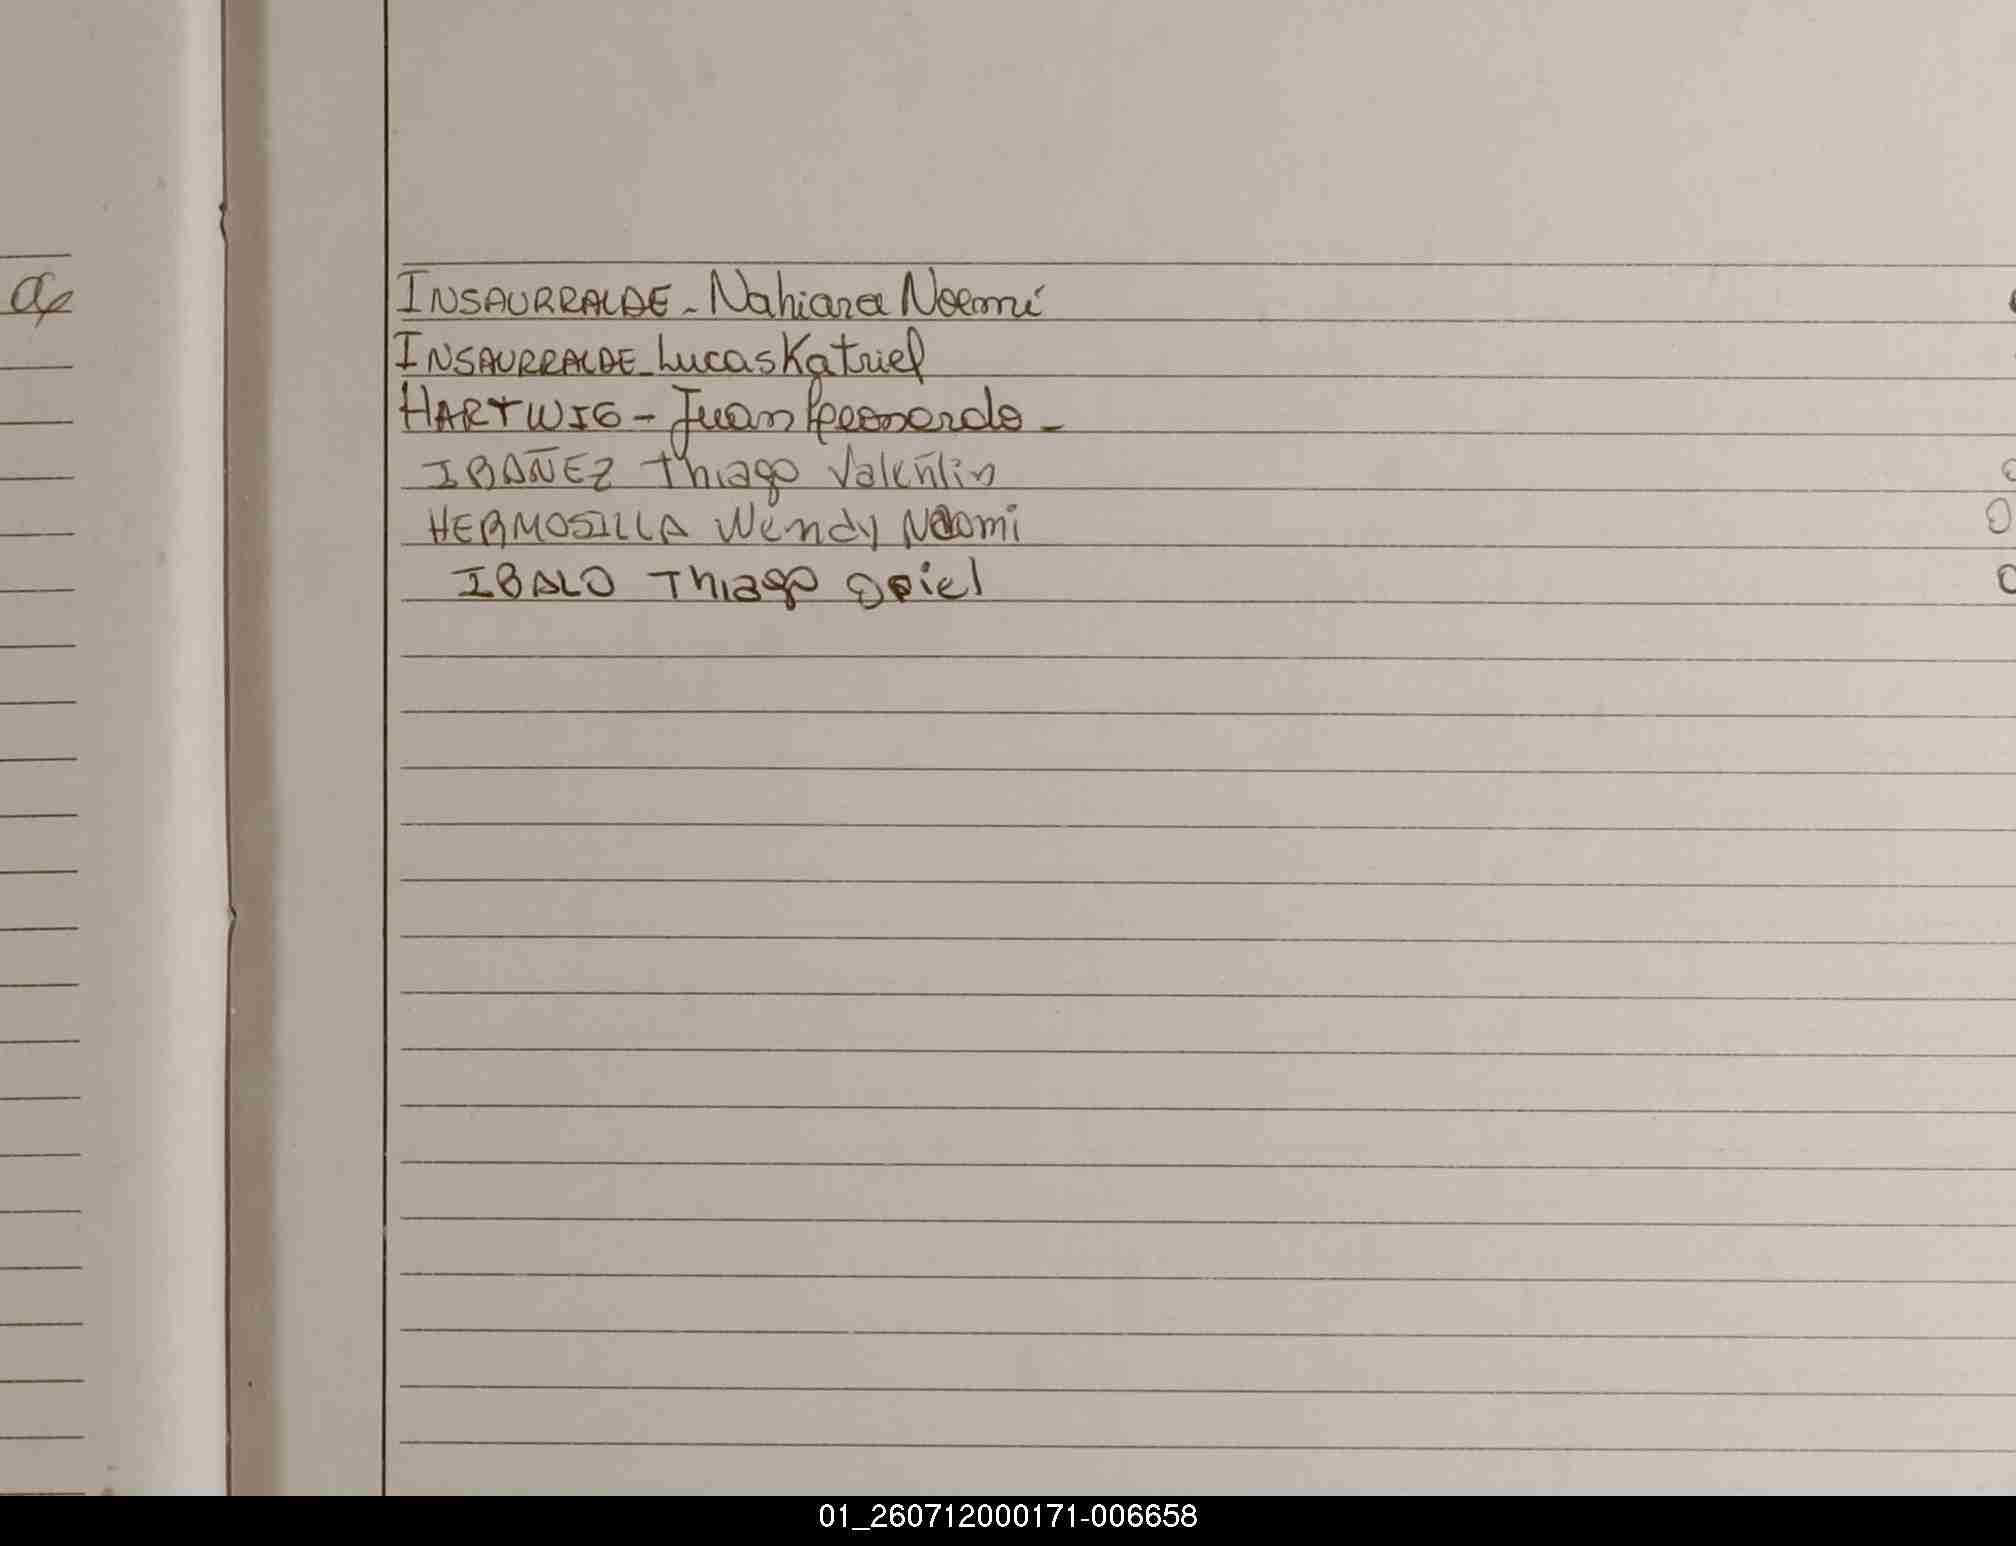 INSAURRALDE - Nahiara Noemí
INSAURRALDE - Lucas Katriel
HARTWIG - Juan Leonardo -
IBAÑEZ Thiago Valentín
HERMOSILLA Wendy Noemi
IBALO Thiago
01_260712000171-006658